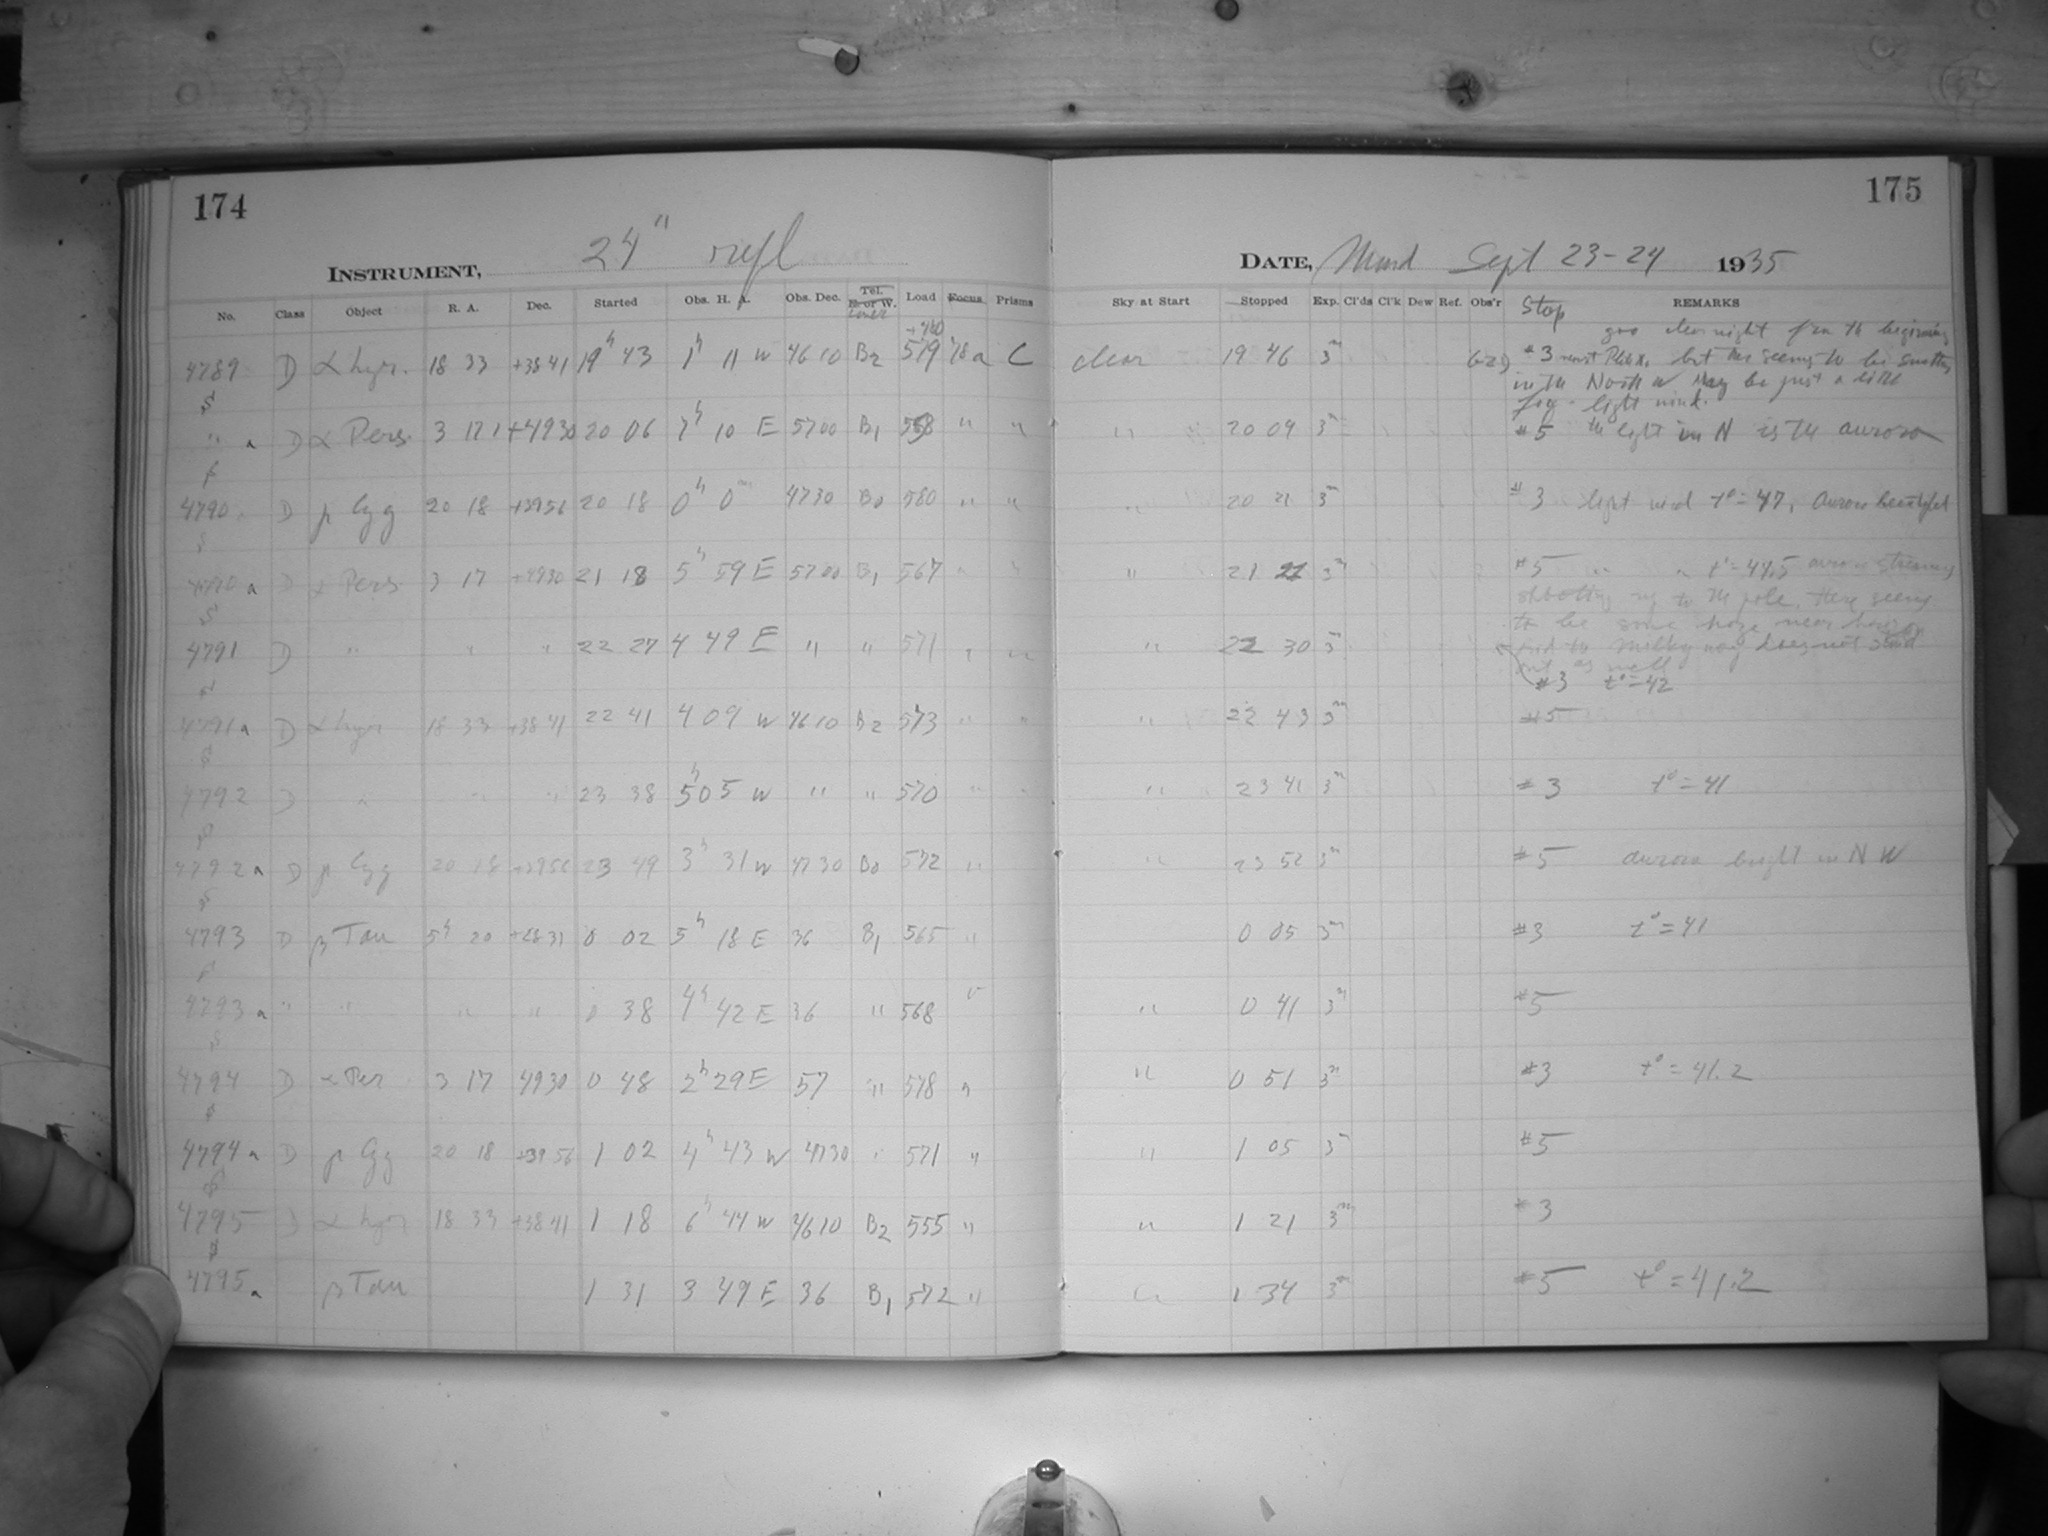 174
175
INSTRUMENT, 24" refl
DATE, Sept 23-24 1935
No. Class Object R. A. Dec. Started Obs. H. A. Obs. Dec. Tel. E. or W. Load Focus Prisms Sky at Start Stopped Exp. Cl'ds Cl'k Dew Ref. Obs'r Stop REMARKS
clear night from the beginning
4789 D α Lyr. 18 33 +38 41 19h 43 1h 11 W 4610 B2 579 78a C clear 19 46 3m #3 but seems to be
in the North W May be just a little
fog. light wind.
" a D α Pers 3 17 +4930 20 06 7h 10 E 5700 B1 " " " 20 09 3m #5 the light in N is the aurora
4790 D γ Cyg 20 18 +3956 20 18 0h 0m 4730 B0 580 " " " 20 21 3m #3 light wind t°=47, aurora beautiful
4790a D α Pers 3 17 +4930 21 18 5h 59 E 5700 B1 567 " " " 21 21 3m #5 " " aurora streamers
shooting up to the pole, there seems
to be some haze near
the milky way does not stand
out as well
4791 D " " " 22 27 4 49 E " " 571 " " " 22 30 3m #3 t°=42
4791a D α Lyr 18 33 +38 41 22 41 4 09 W 4610 B2 573 " " " 22 43 3m #5
4792 D " " " 23 38 5h 05 W " " 570 " " " 23 41 3m #3 t°=41
4792a D γ Cyg 20 18 +3956 23 49 3h 31 W 4730 B0 572 " " 23 52 3m #5 aurora bright in N W
4793 D β Tau 5h 20 +28 31 0 02 5h 18 E 36 B1 565 " 0 05 3m #3 t°=41
4793a " " " " 0 38 4h 42 E 36 " 568 " " 0 41 3m #5
4794 D α Per 3 17 4930 0 48 2h 29 E 57 " 578 " " 0 51 3m #3 t°=41.2
4794a D γ Cyg 20 18 +39 56 1 02 4h 43 W 4730 " 571 " " 1 05 3m #5
4795 D α Lyr 18 33 +38 41 1 18 6h 44 W 4610 B2 555 " " 1 21 3m #3
4795a β Tau 1 31 3 49 E 36 B1 572 " " 1 34 3m #5 t°=41.2